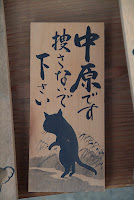 中原です
捜さないで
下さい